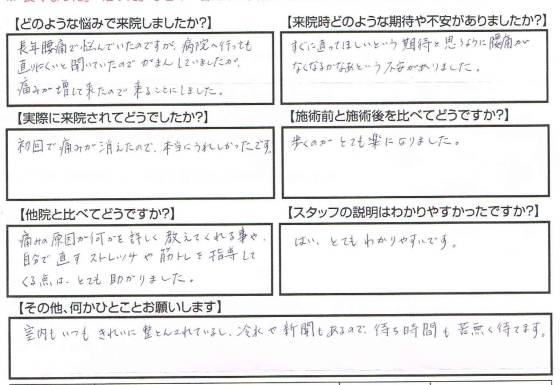 【どのような悩みで来院しましたか?】
長年腰痛で悩んでいたのですが、病院へ行っても
直りにくいと聞いていたのでがまんしていましたが、
痛みが増して来たので来ることにしました。
【来院時どのような期待や不安がありましたか?】
すぐに直ってほしいという期待と思うように腰痛が
なくなるかなあという不安がありました。
【実際に来院されてどうでしたか?】
初回で痛みが消えたので、本当にうれしかったです。
【施術前と施術後を比べてどうですか?】
歩くのがとても楽になりました。
【他院と比べてどうですか?】
痛みの原因が何かを詳しく教えてくれる事や、
自分で直すストレッチや筋トレを指導して
くる点は、とても助かりました。
【スタッフの説明はわかりやすかったですか?】
はい、とてもわかりやすいです。
【その他、何かひとことお願いします】
室内もいつもきれいに整とんされているし、冷水や新聞もあるので、待ち時間も苦無く待てます。